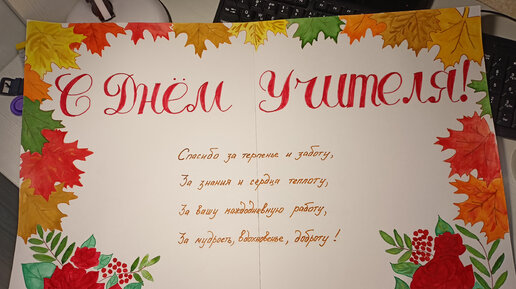 С Днём Учителя!
Спасибо за терпенье и заботу,
За знания и сердца теплоту,
За вашу каждодневную работу,
За мудрость, вдохновенье, доброту!